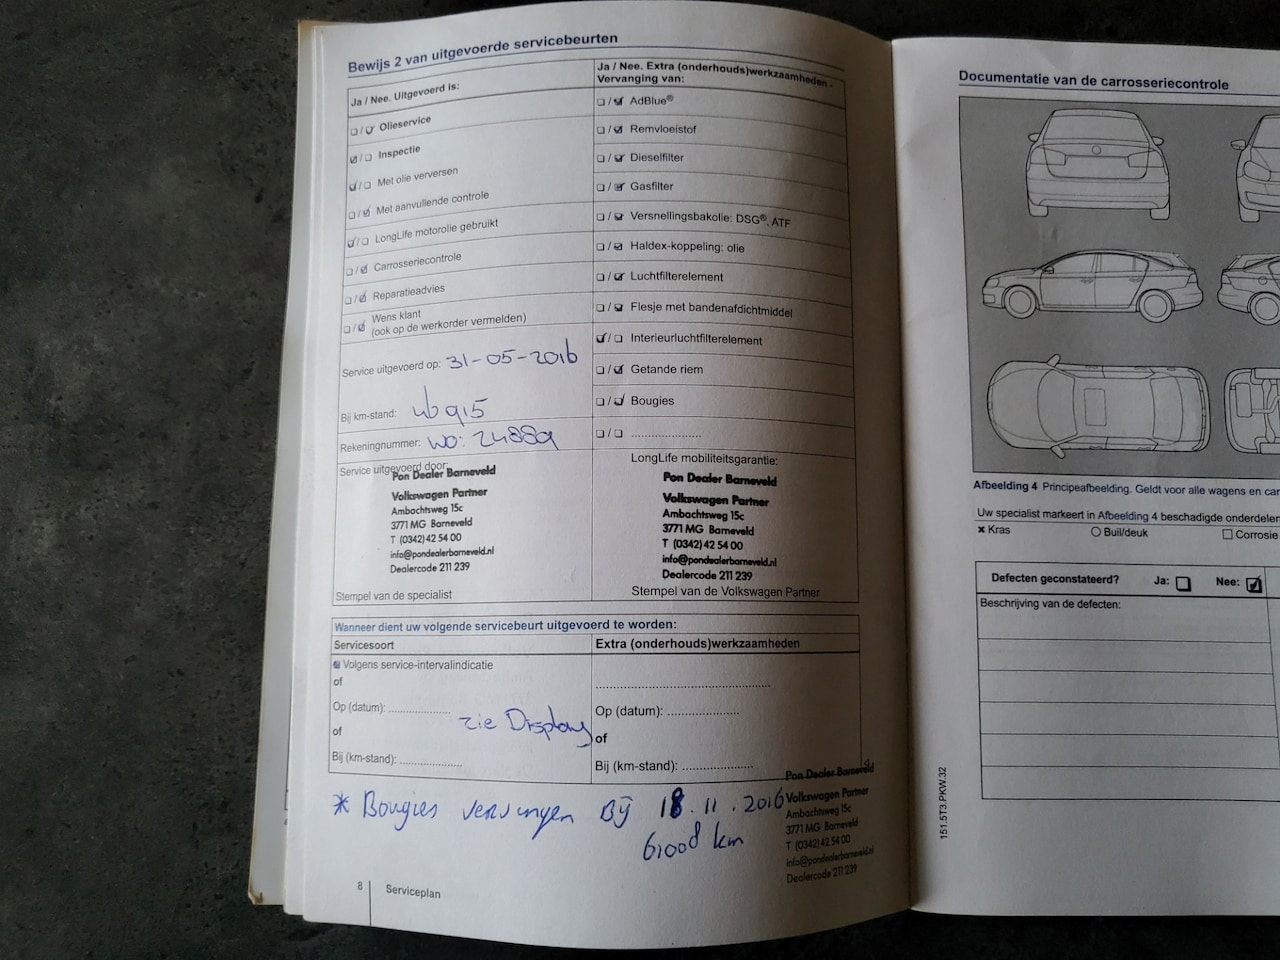 Bewijs 2 van uitgevoerde servicebeurten
Ja / Nee. Uitgevoerd is:
☐ / ☑ Olieservice
☑ / ☐ Inspectie
☑ / ☐ Met olie verversen
☐ / ☑ Met aanvullende controle
☑ / ☐ LongLife motorolie gebruikt
☐ / ☑ Carrosseriecontrole
☐ / ☑ Reparatieadvies
☐ / ☑ Wens klant
(ook op de werkorder vermelden)
Service uitgevoerd op: 31-05-2016
Bij km-stand:
Rekeningnummer: WO:
Service uitgevoerd door:
Pon Dealer Barneveld
Volkswagen Partner
Ambachtsweg 15c
3771 MG Barneveld
T (0342) 42 54 00
info@pondealerbarneveld.nl
Dealercode 211 239
Stempel van de specialist
Ja / Nee. Extra (onderhouds)werkzaamheden -
Vervanging van:
☐ / ☑ AdBlue®
☐ / ☑ Remvloeistof
☐ / ☑ Dieselfilter
☐ / ☑ Gasfilter
☐ / ☑ Versnellingsbakolie: DSG®, ATF
☐ / ☑ Haldex-koppeling: olie
☐ / ☑ Luchtfilterelement
☐ / ☑ Flesje met bandenafdichtmiddel
☑ / ☐ Interieurluchtfilterelement
☐ / ☑ Getande riem
☐ / ☑ Bougies
☐ / ☐ .....................
LongLife mobiliteitsgarantie:
Pon Dealer Barneveld
Volkswagen Partner
Ambachtsweg 15c
3771 MG Barneveld
T (0342) 42 54 00
info@pondealerbarneveld.nl
Dealercode 211 239
Stempel van de Volkswagen Partner
Wanneer dient uw volgende servicebeurt uitgevoerd te worden:
Servicesoort
Volgens service-intervalindicatie
of
Op (datum): ....................
zie Display
of
Bij (km-stand): ....................
Extra (onderhouds)werkzaamheden
..................................................
Op (datum): ....................
of
Bij (km-stand): ....................
* Bougies vervangen Bij 18.11.2016
61008 km
Pon Dealer Barneveld
Volkswagen Partner
Ambachtsweg 15c
3771 MG Barneveld
T (0342) 42 54 00
info@pondealerbarneveld.nl
Dealercode 211 239
8 Serviceplan
Documentatie van de carrosseriecontrole
Afbeelding 4 Principeafbeelding. Geldt voor alle wagens en
Uw specialist markeert in Afbeelding 4 beschadigde onderdelen
✖ Kras ○ Buil/deuk ☐ Corrosie
Defecten geconstateerd? Ja: ☐ Nee: ☑
Beschrijving van de defecten:
151.5T3.PKW.32